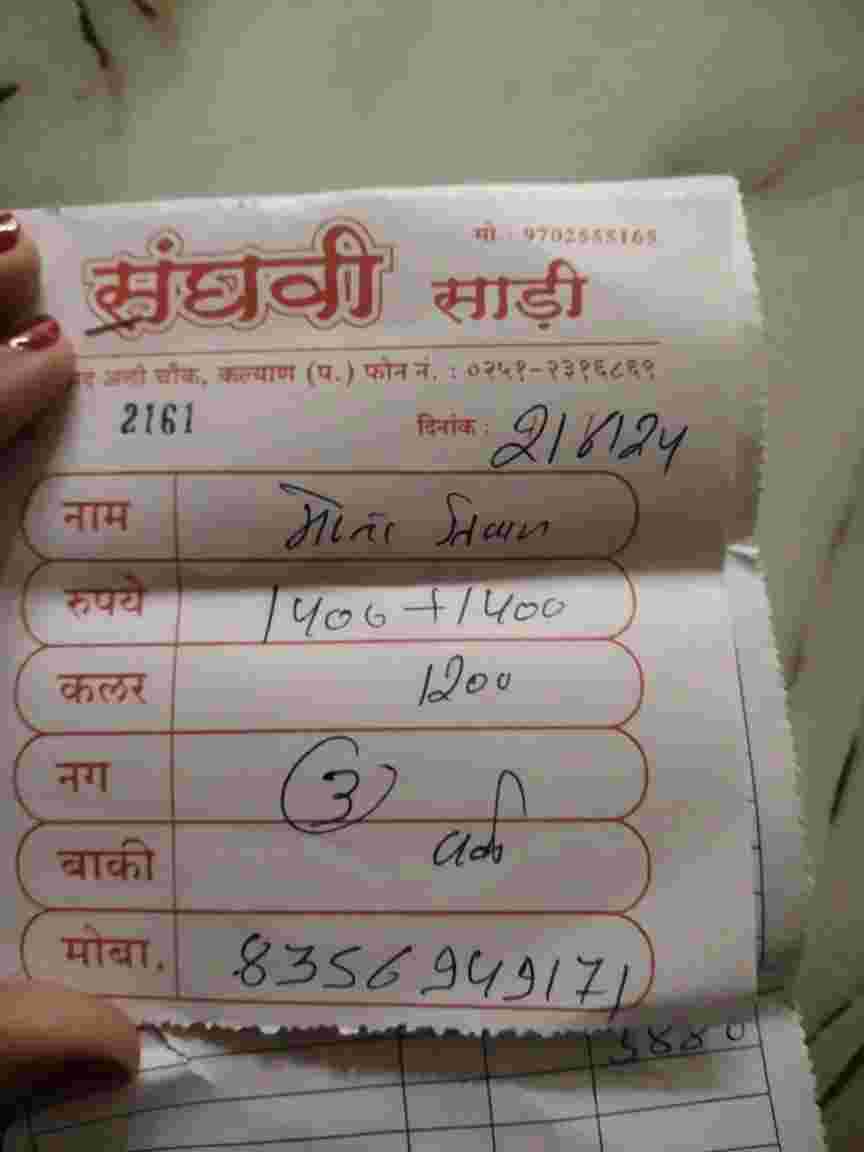 मो. : 9702555165
संघवी साड़ी
अली चौक, कल्याण (प.) फोन नं. : ०२५१-२३१६८६९
2161 दिनांक :
नाम
रुपये 1400+1400
कलर 1200
नग 3
बाकी
मोबा. 8356949171